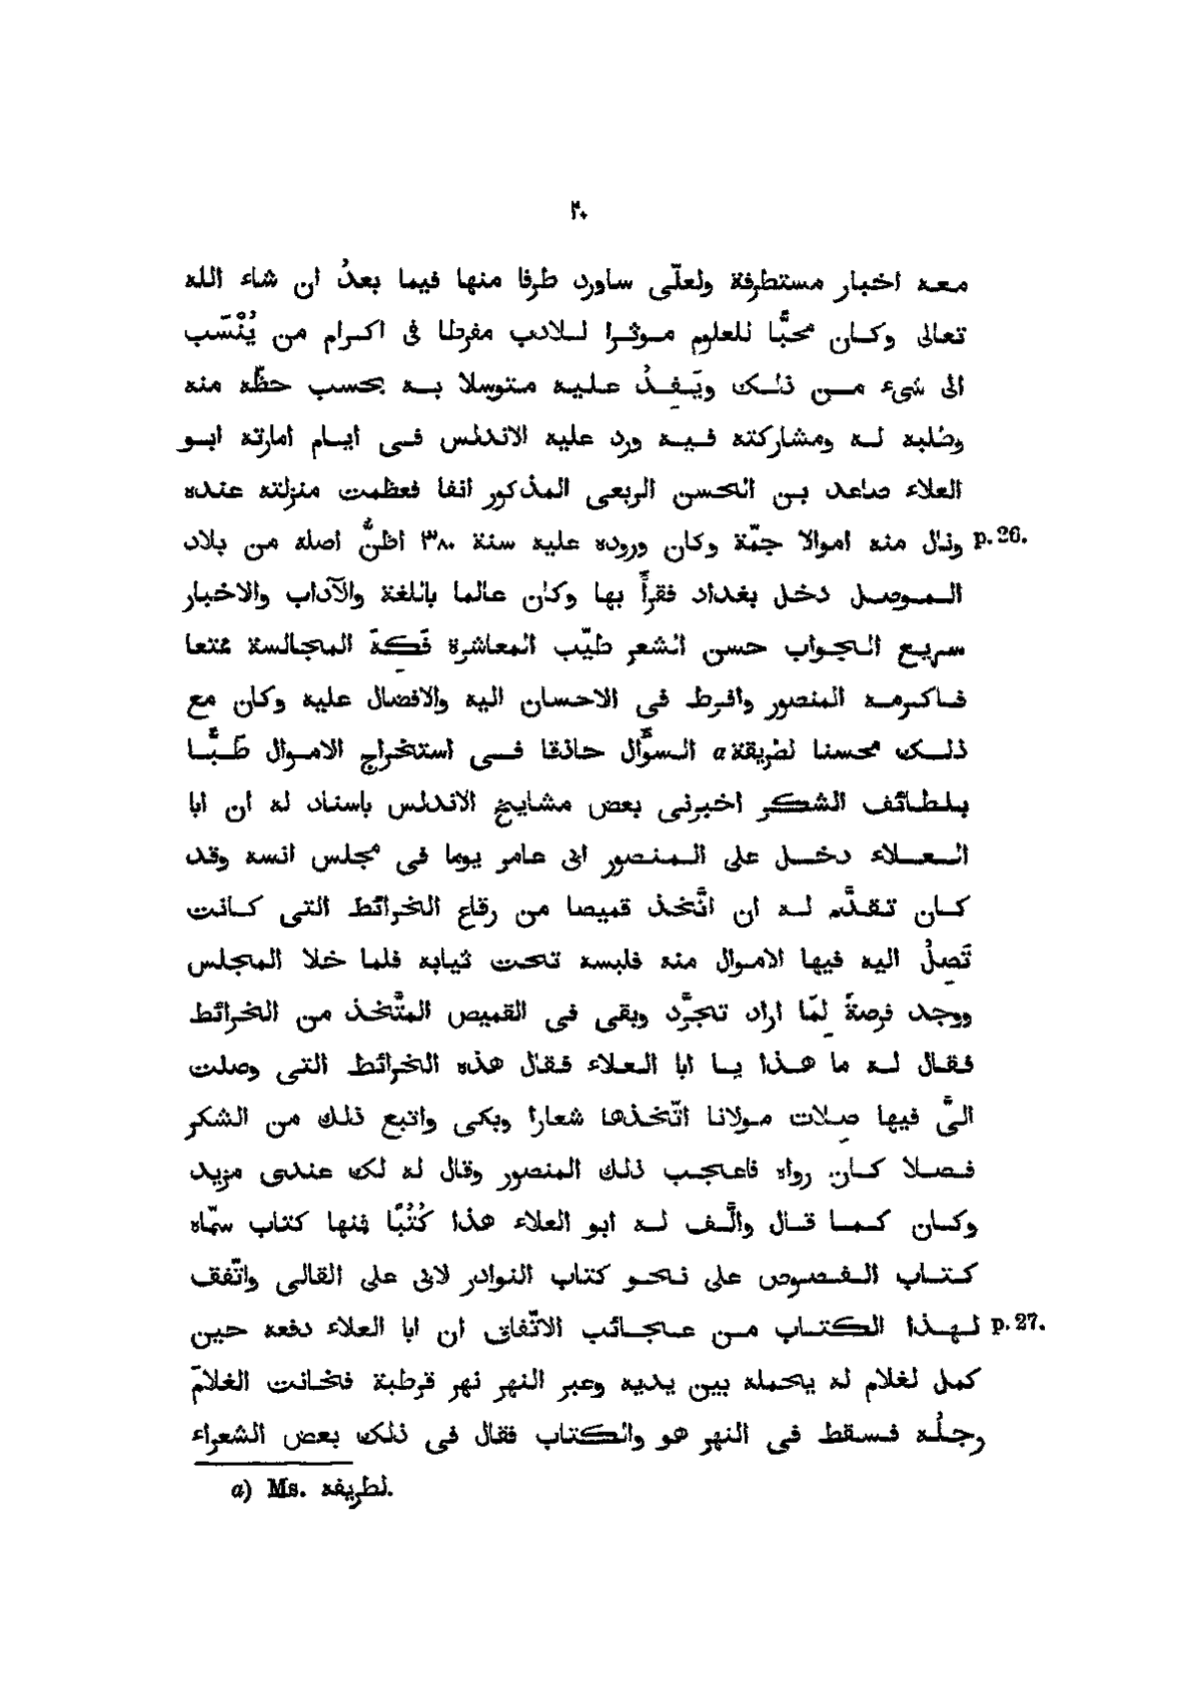 ٢٠
معه اخبار مستطرفة ولعلّى ساورد طرفا منها فيما بعدُ ان شاء الله
تعالى وكان محبًّا للعلوم موثرا للادب مفرطا فى اكرام من يُنْسَب
الى شىء من ذلك ويَفِدُ عليه متوسلا به بحسب حظّه منه
وطلبه له ومشاركته فيه ورد عليه الاندلس فى ايام امارته ابو
العلاء صاعد بن الحسن الربعى المذكور انفا فعظمت منزلته عنده
ونال منه اموالا جمّة وكان وروده عليه سنة ٣٨٠ اظنُّ اصله من بلاد p. 26.
الموصل دخل بغداد فقرأ بها وكان عالما باللغة والآداب والاخبار
سريع الجواب حسن الشعر طيّب المعاشرة فَكِهَ المجالسة ممتعا
فاكرمه المنصور وافرط فى الاحسان اليه والافضال عليه وكان مع
ذلك محسنا لطريقة a السؤّال حاذقا فى استخراج الاموال طَبًّا
بلطائف الشكر اخبرنى بعض مشايخ الاندلس باسناد له ان ابا
العلاء دخل على المنصور ابى عامر يوما فى مجلس انسه وقد
كان تقدّم له ان اتّخذ قميصا من رقاع الخرائط التى كانت
تَصِلُ اليه فيها الاموال منه فلبسه تحت ثيابه فلما خلا المجلس
ووجد فرصةً لِمّا اراد تجرّد وبقى فى القميص المتّخذ من الخرائط
فقال له ما هذا يا ابا العلاء فقال هذه الخرائط التى وصلت
الىّ فيها صِلات مولانا اتّخذها شعارا وبكى واتبع ذلك من الشكر
فصلا كان رواه فاعجب ذلك المنصور وقال له لك عندى مزيد
وكان كما قال والّف له ابو العلاء هذا كُتُبًا فمنها كتاب سمّاه
كتاب الفصوص على نحو كتاب النوادر لابى على القالى واتّفق
لهذا الكتاب من عجائب الاتّفاق ان ابا العلاء دفعه حين p. 27.
كمل لغلام له يحمله بين يديه وعبر النهر نهر قرطبة فخانت الغلامَ
رجلُه فسقط فى النهر هو والكتاب فقال فى ذلك بعض الشعراء
a) Ms. لطريفه.